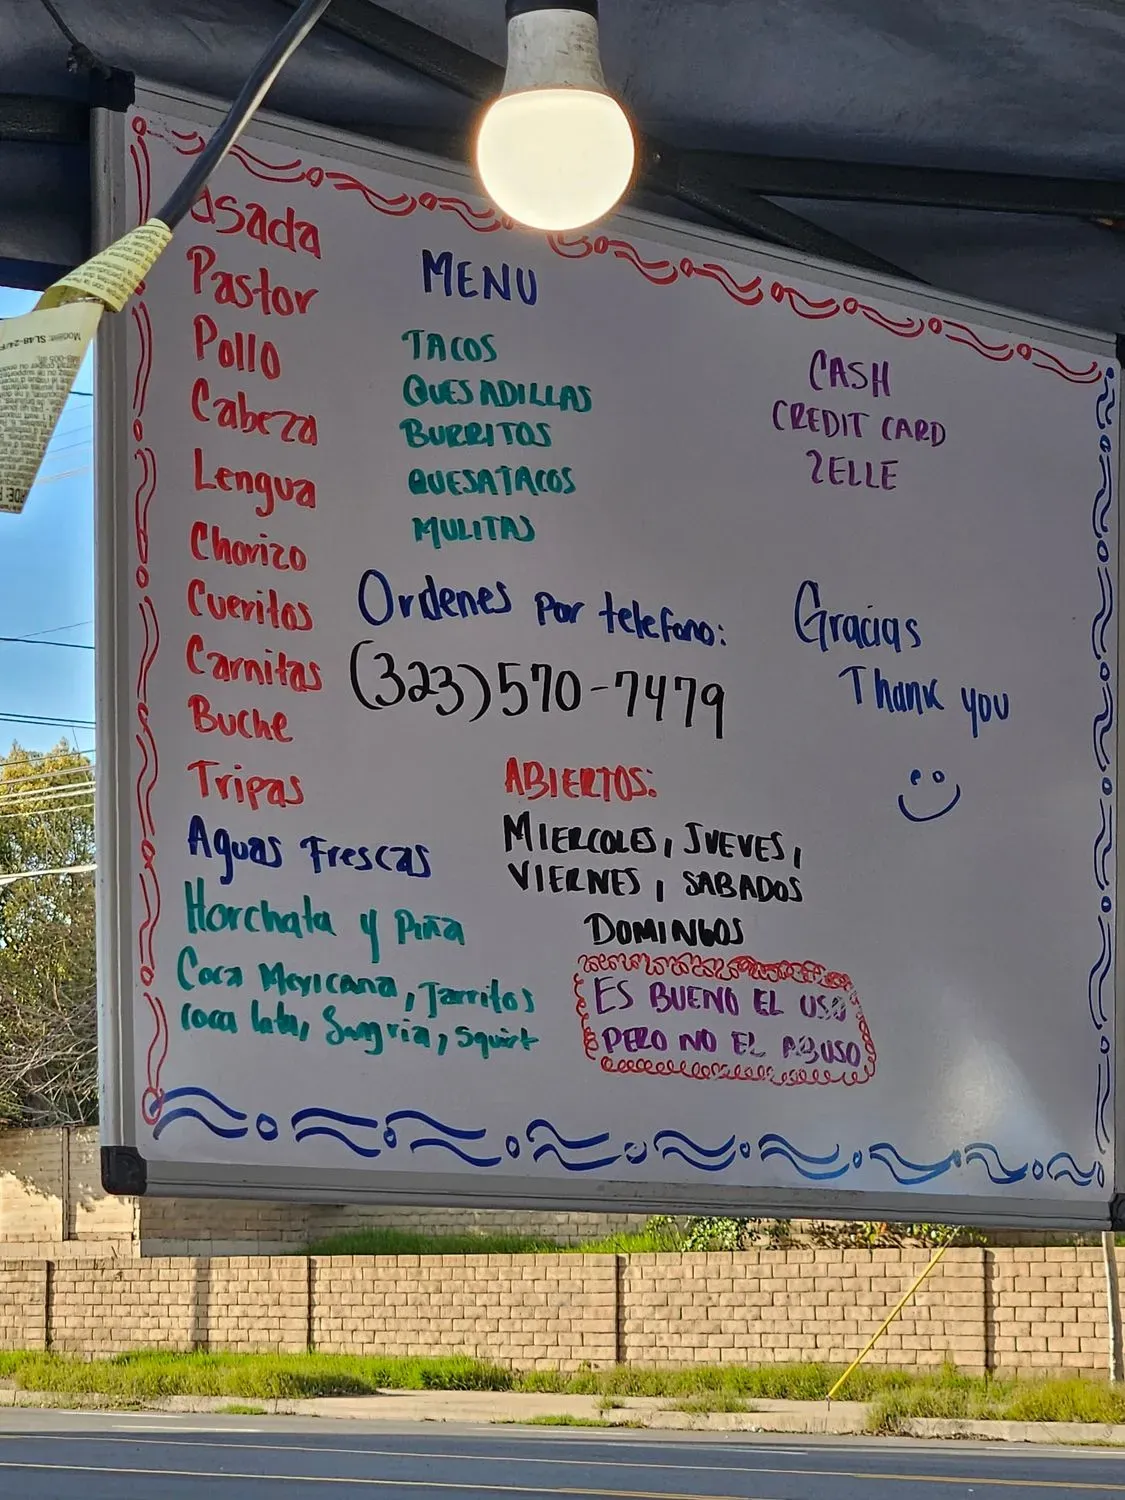 Asada
Pastor
Pollo
Cabeza
Lengua
Chorizo
Cueritos
Carnitas
Buche
Tripas
Aguas Frescas
Horchata y Piña
Coca Mexicana, Jarritos
coca lata, Sangria, Squirt
MENU
TACOS
QUESADILLAS
BURRITOS
QUESATACOS
MULITAS
CASH
CREDIT CARD
ZELLE
Ordenes por telefono:
(323)570-7479
Gracias
Thank you
ABIERTOS:
MIERCOLES, JUEVES,
VIERNES, SABADOS
DOMINGOS
ES BUENO EL USO
PERO NO EL ABUSO